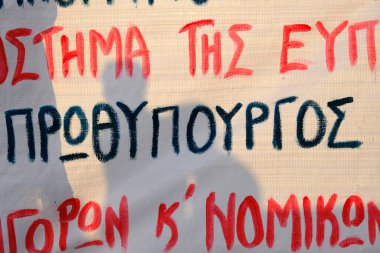 ΟΣΤΗΜΑ ΤΗΣ ΕΥΠ
ΠΡΩΘΥΠΟΥΡΓΟΣ
ΗΓΟΡΩΝ Κ' ΝΟΜΙΚΩΝ